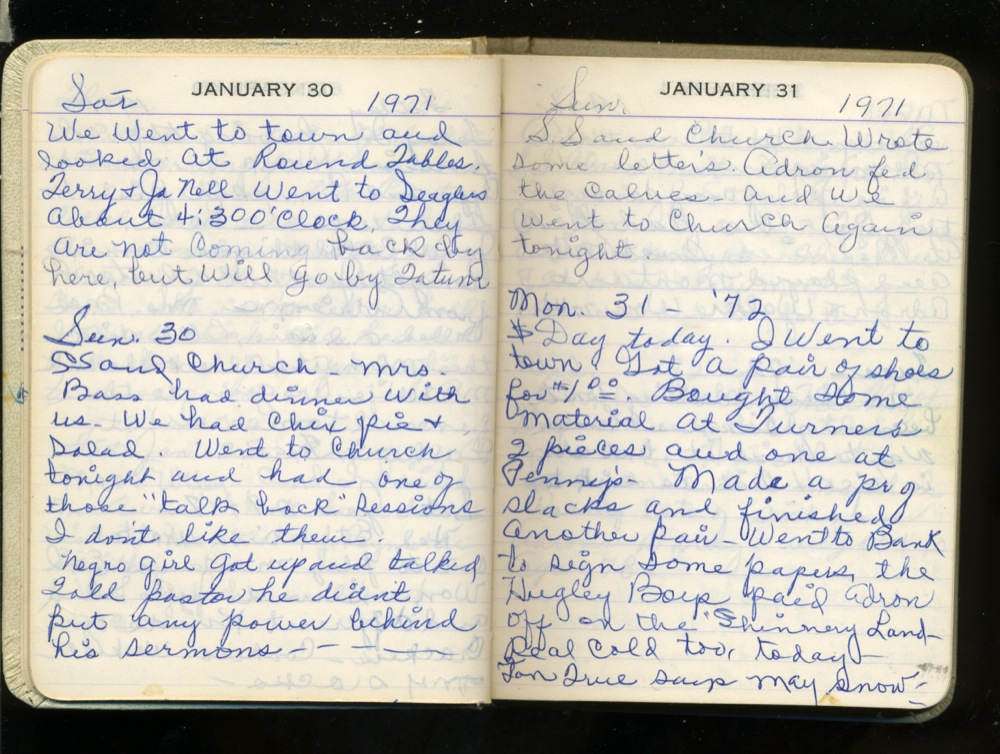 JANUARY 30
Sat 1971
We Went to town and
looked at Round Tables.
Terry & Ja Nell Went to Seagles
About 4:30 O'Clock. They
are not Coming back by
here, but Will go by Tatum
Sun. 30
SS and Church - Mrs.
Bass had dinner With
us. We had Chix pie &
salad. Went to Church
tonight and had one of
those "talk back" Sessions
I don't like them.
Negro girl got up and talked
Told pastor he didn't
put any power behind
his sermons - - -
JANUARY 31
Sun. 1971
S.S and Church. Wrote
some letters. Adron fed
the Calves - and We
Went to Church Again
tonight.
Mon. 31 - '72
$ Day today. I Went to
town. Got a pair of shoes
for $1.00. Bought Some
material at Turners
2 pieces and one at
Penny's - Made a pr of
slacks and finished
Another pair - Went to Bank
to sign some papers, the
Hugley Boys paid Adron
off on the Shinnery Land -
Real Cold too, today -
True says may snow -